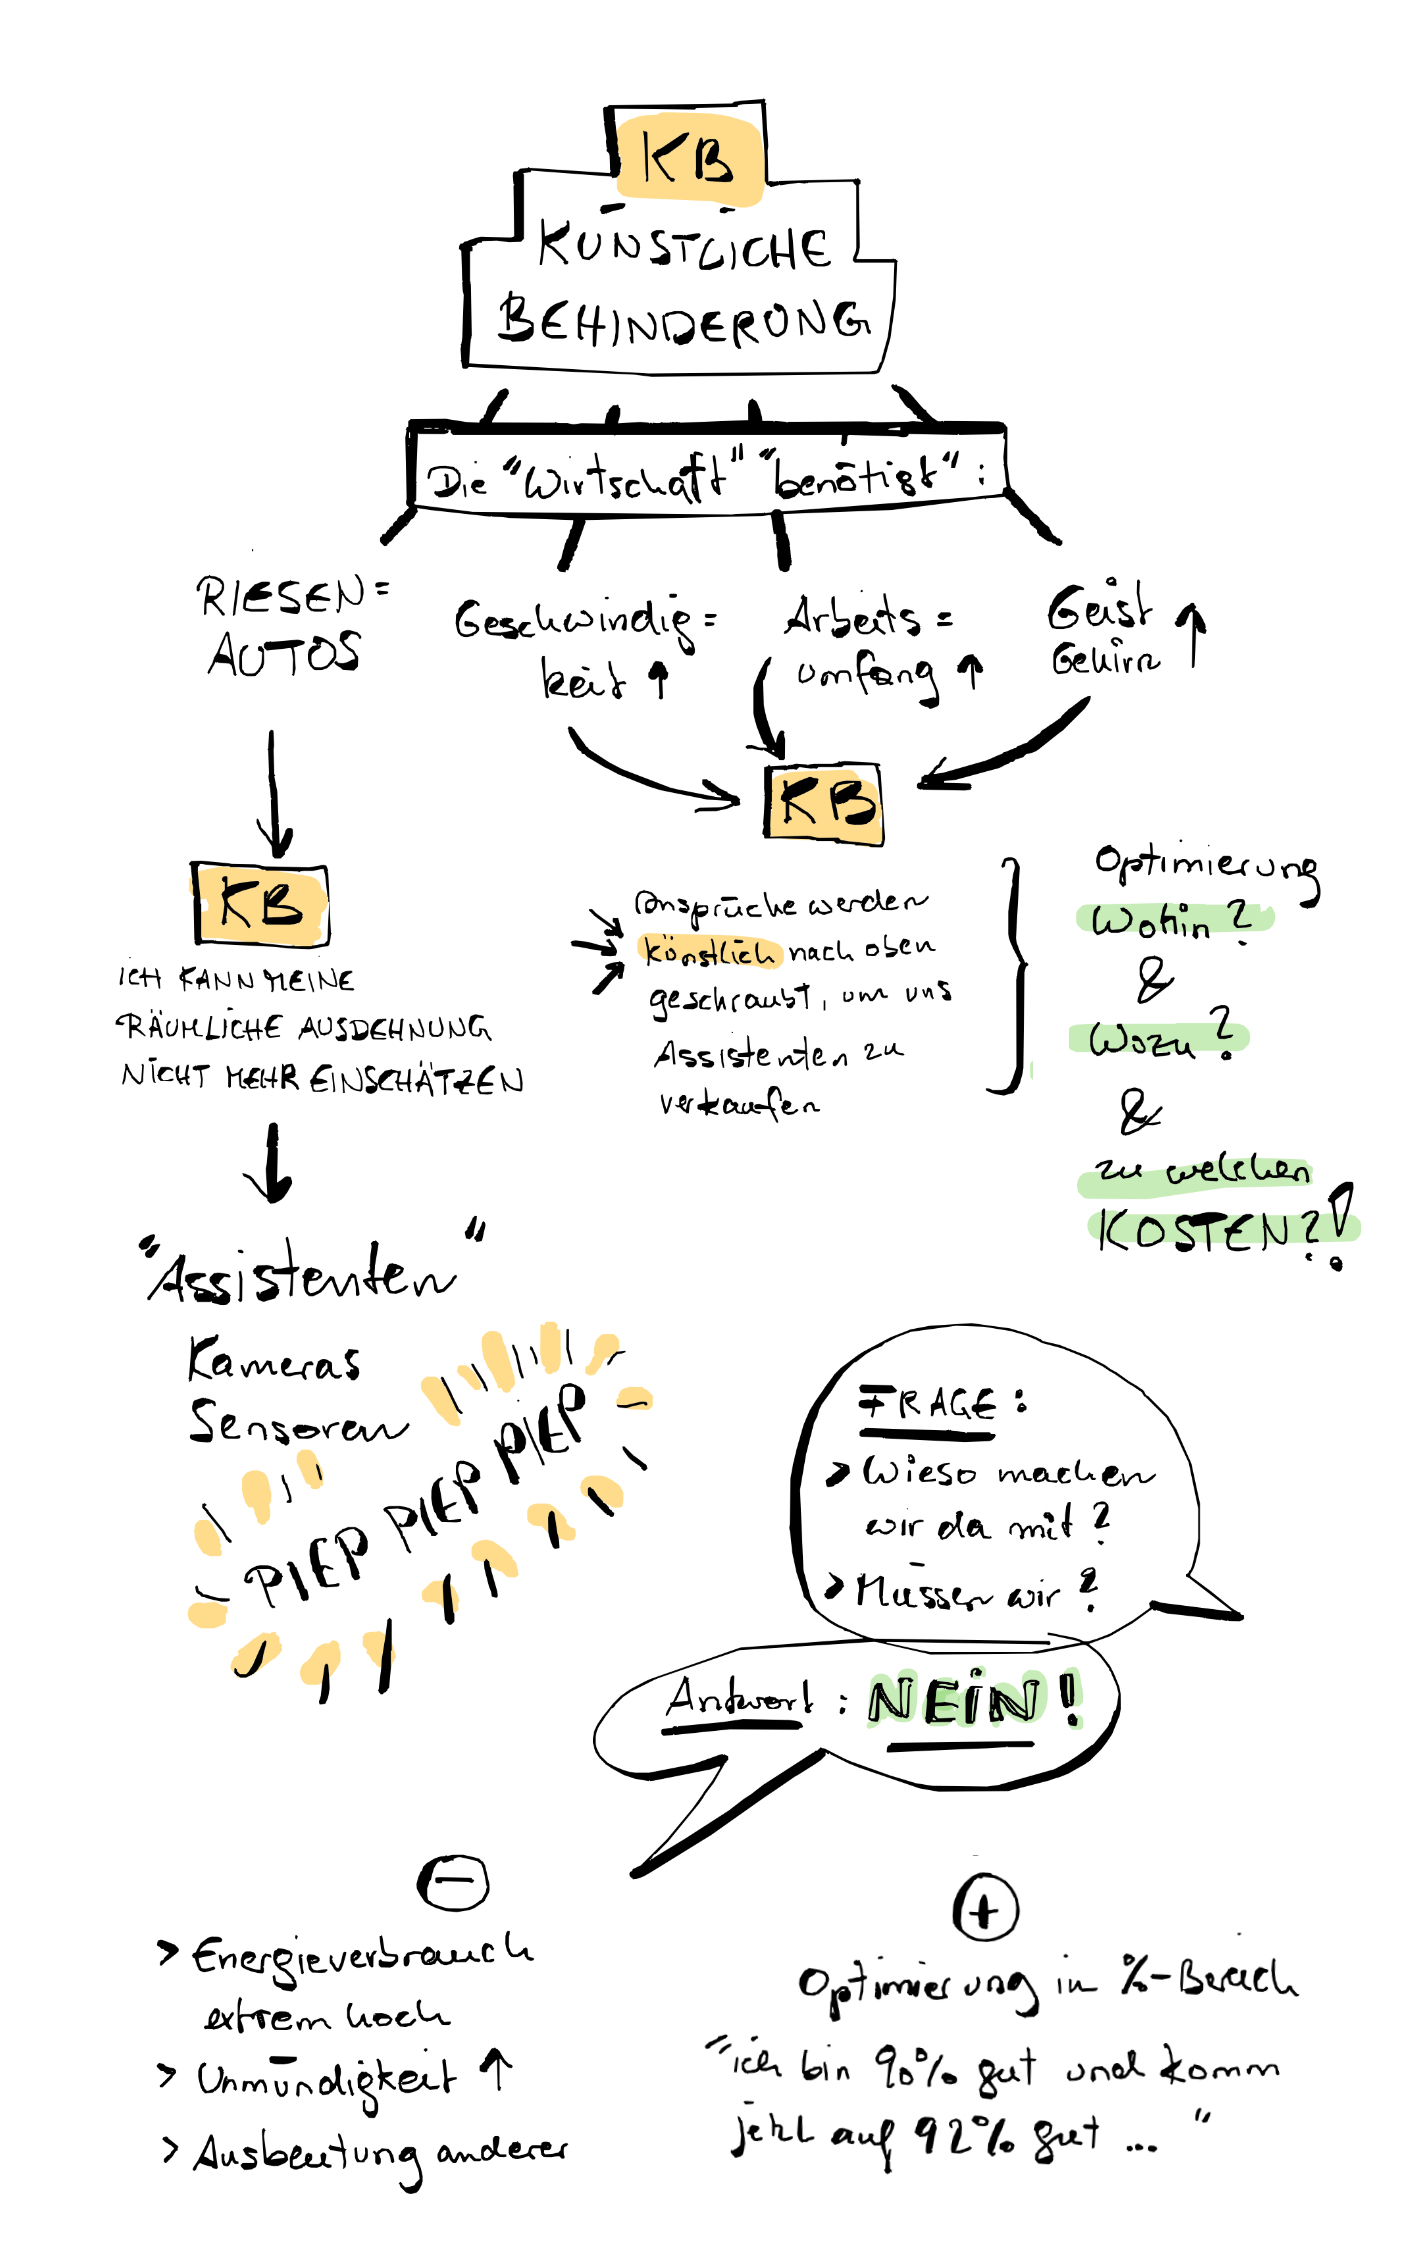 KB
KÜNSTLICHE
BEHINDERUNG
Die "Wirtschaft" "benötigt":
RIESEN=
AUTOS
Geschwindig=
keit ↑
Arbeits=
umfang ↑
Geist
Gehirn ↑
KB
ICH KANN MEINE
RÄUMLICHE AUSDEHNUNG
NICHT MEHR EINSCHÄTZEN
"Assistenten"
Kameras
Sensoren
PIEP PIEP PIEP
KB
Ansprüche werden
künstlich nach oben
geschraubt, um uns
Assistenten zu
verkaufen
Optimierung
Wohin?
&
Wozu?
&
zu welchen
KOSTEN?!
FRAGE:
> Wieso machen
wir da mit?
> Müssen wir?
Antwort: NEIN!
−
> Energieverbrauch
extrem hoch
> Unmündigkeit ↑
> Ausbeutung anderer
+
Optimierung in %-Bereich
"ich bin 90% gut und komm
jetzt auf 92% gut ..."